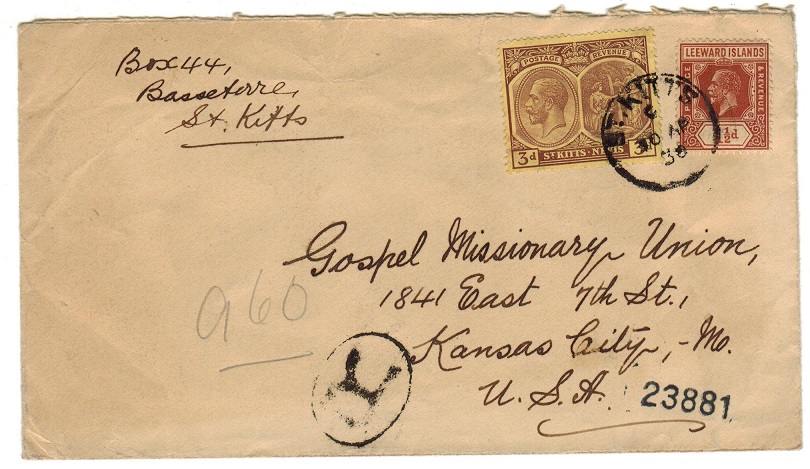 Box 44,
Basseterre,
St. Kitts
POSTAGE REVENUE
3d ST KITTS-NEVIS 3d
LEEWARD ISLANDS
POSTAGE & REVENUE
½d
ST. KITTS
AP
38
Gospel Missionary Union,
1841 East 7th St.,
Kansas City,-Mo.
U.S.A.
23881
960
T